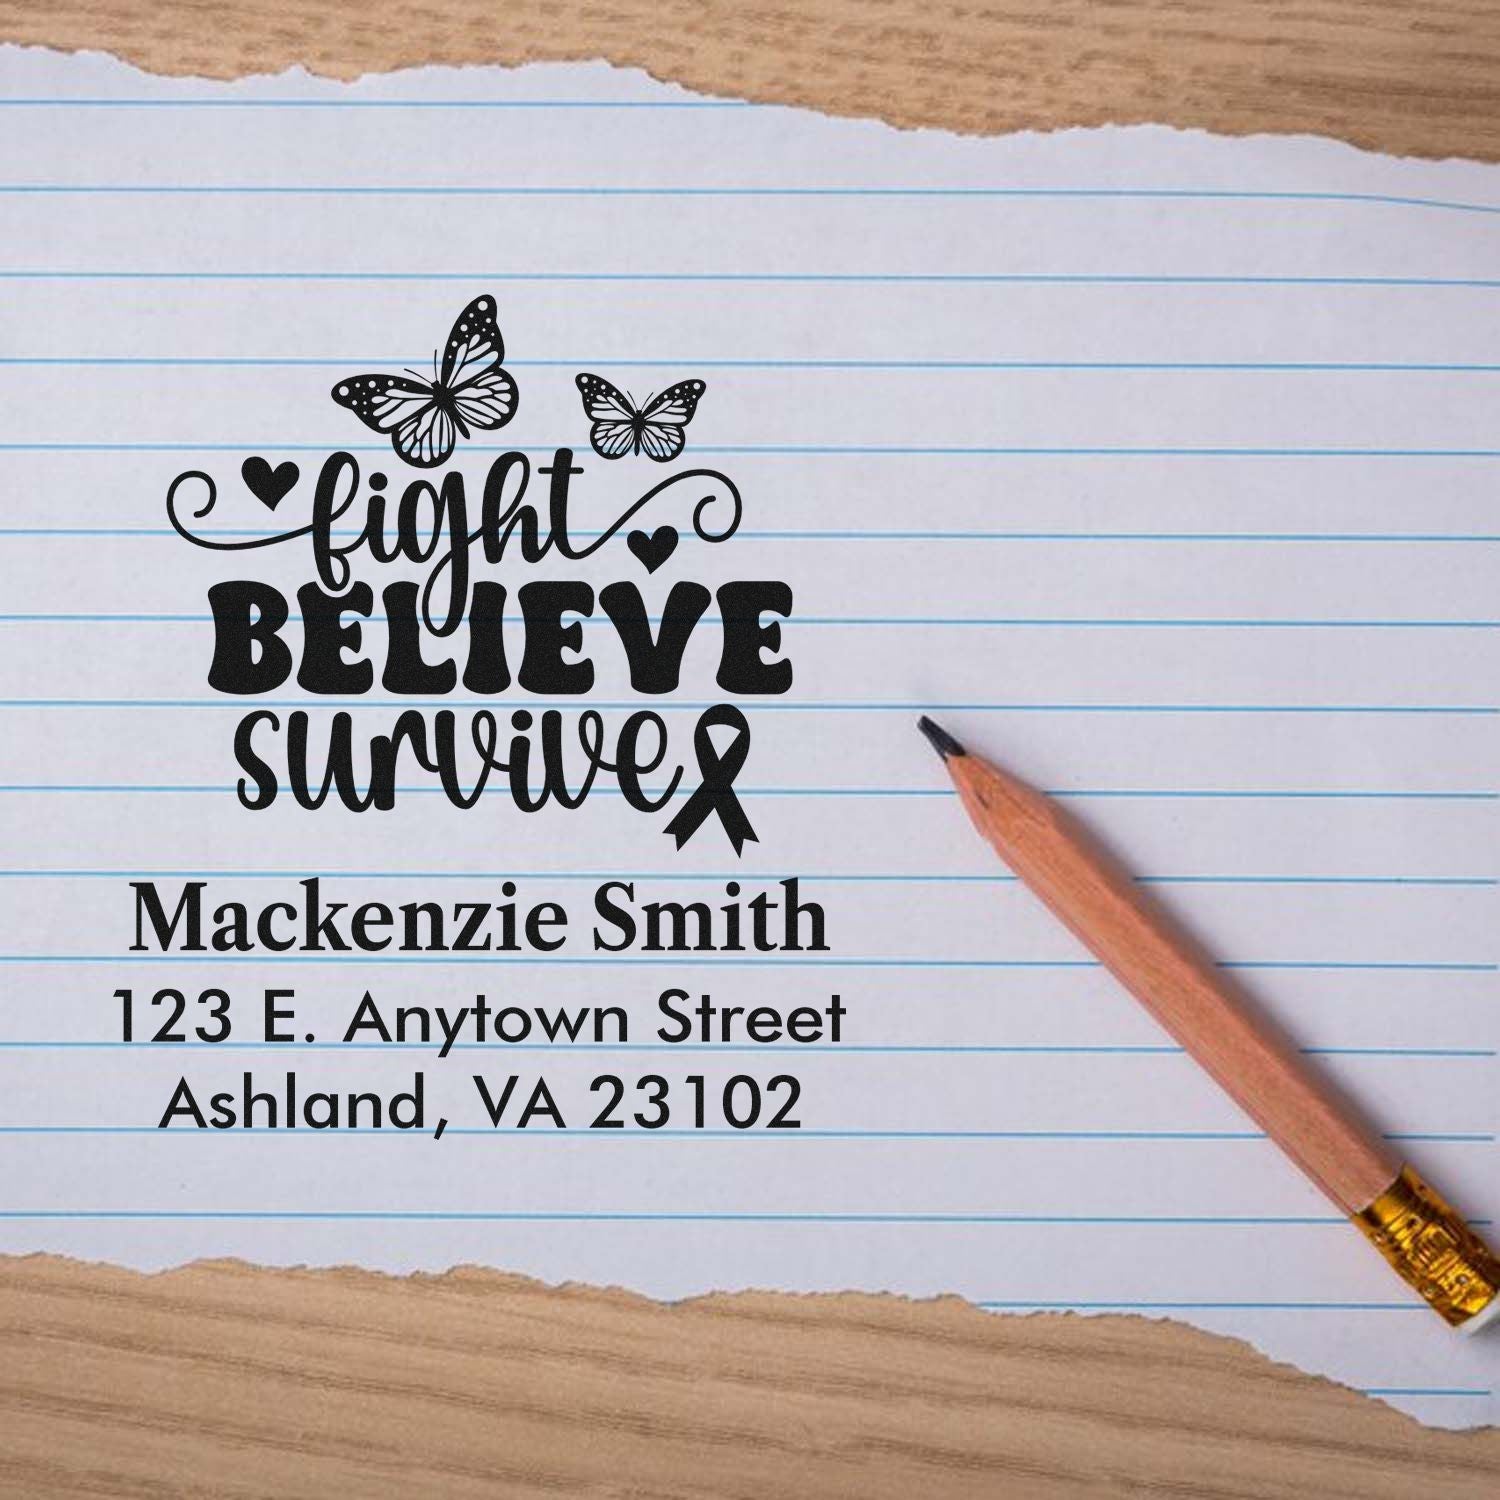 fight
BELIEVE
survive
Mackenzie Smith
123 E. Anytown Street
Ashland, VA 23102